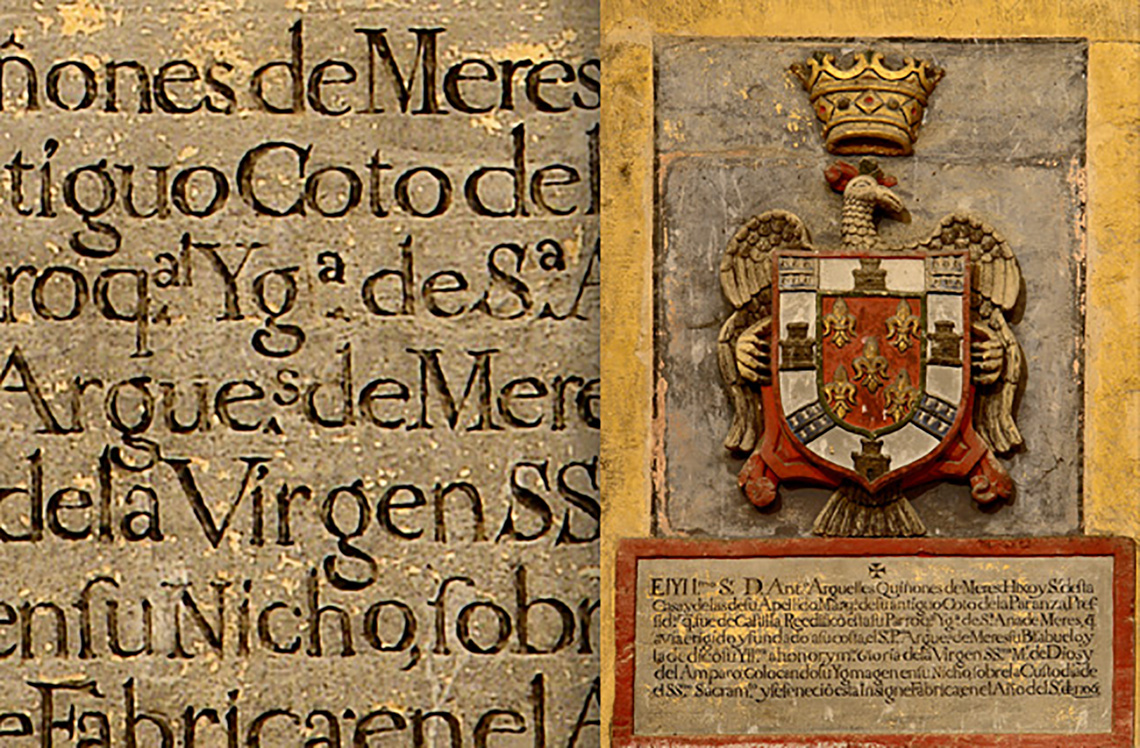 ñones de Meres
tiguo Coto de
roq.ᵃˡ Yg.ᵃ de S.ᵃ A
Argue.ˢ de Mere
dela Virgen SS
enſu Nicho, ſobr
eFabrica en el A
✠
El Yll.ᵐᵒ S.ʳ D. Ant.º Arguelles Quiñones de Meres Hixo y S.ʳ deſta
Casa y de las de ſu Apellido Marq.ˢ de ſu antiguo Coto de la Paranza, Preſ
ſid.ᵗᵉ q. fue de Caſtilla Reedificò eſta ſu Parroq.ᵃˡ Yg.ᵃ de S.ᵃ Ana de Meres, q.
avia erigido y fundado a ſu coſta, el S. P.º Argue.ˢ de Meres ſu Biſabuelo, y
la dedicò ſu Yll.ᵐᵃ a honor y m.ʳ Gloria dela Virgen SS.ᵐᵃ M.ᵉ de Dios y
del Amparo Colocando ſu Ymagen en ſu Nicho, ſobre la Cuſtodia de
el SS.ᵐᵒ Sacram.ᵗᵒ y ſe feneciò eſta Inſigne Fabrica en el Año del S.ʳ de